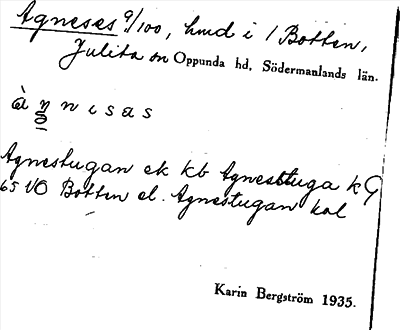 Agneses 9/100, hmd i 1 Botten,
Julita sn Oppunda hd, Södermanlands län.
Agnestugan ek kb Agnestuga k
65 VO Botten el. Agnestugan kal
Karin Bergström 1935.